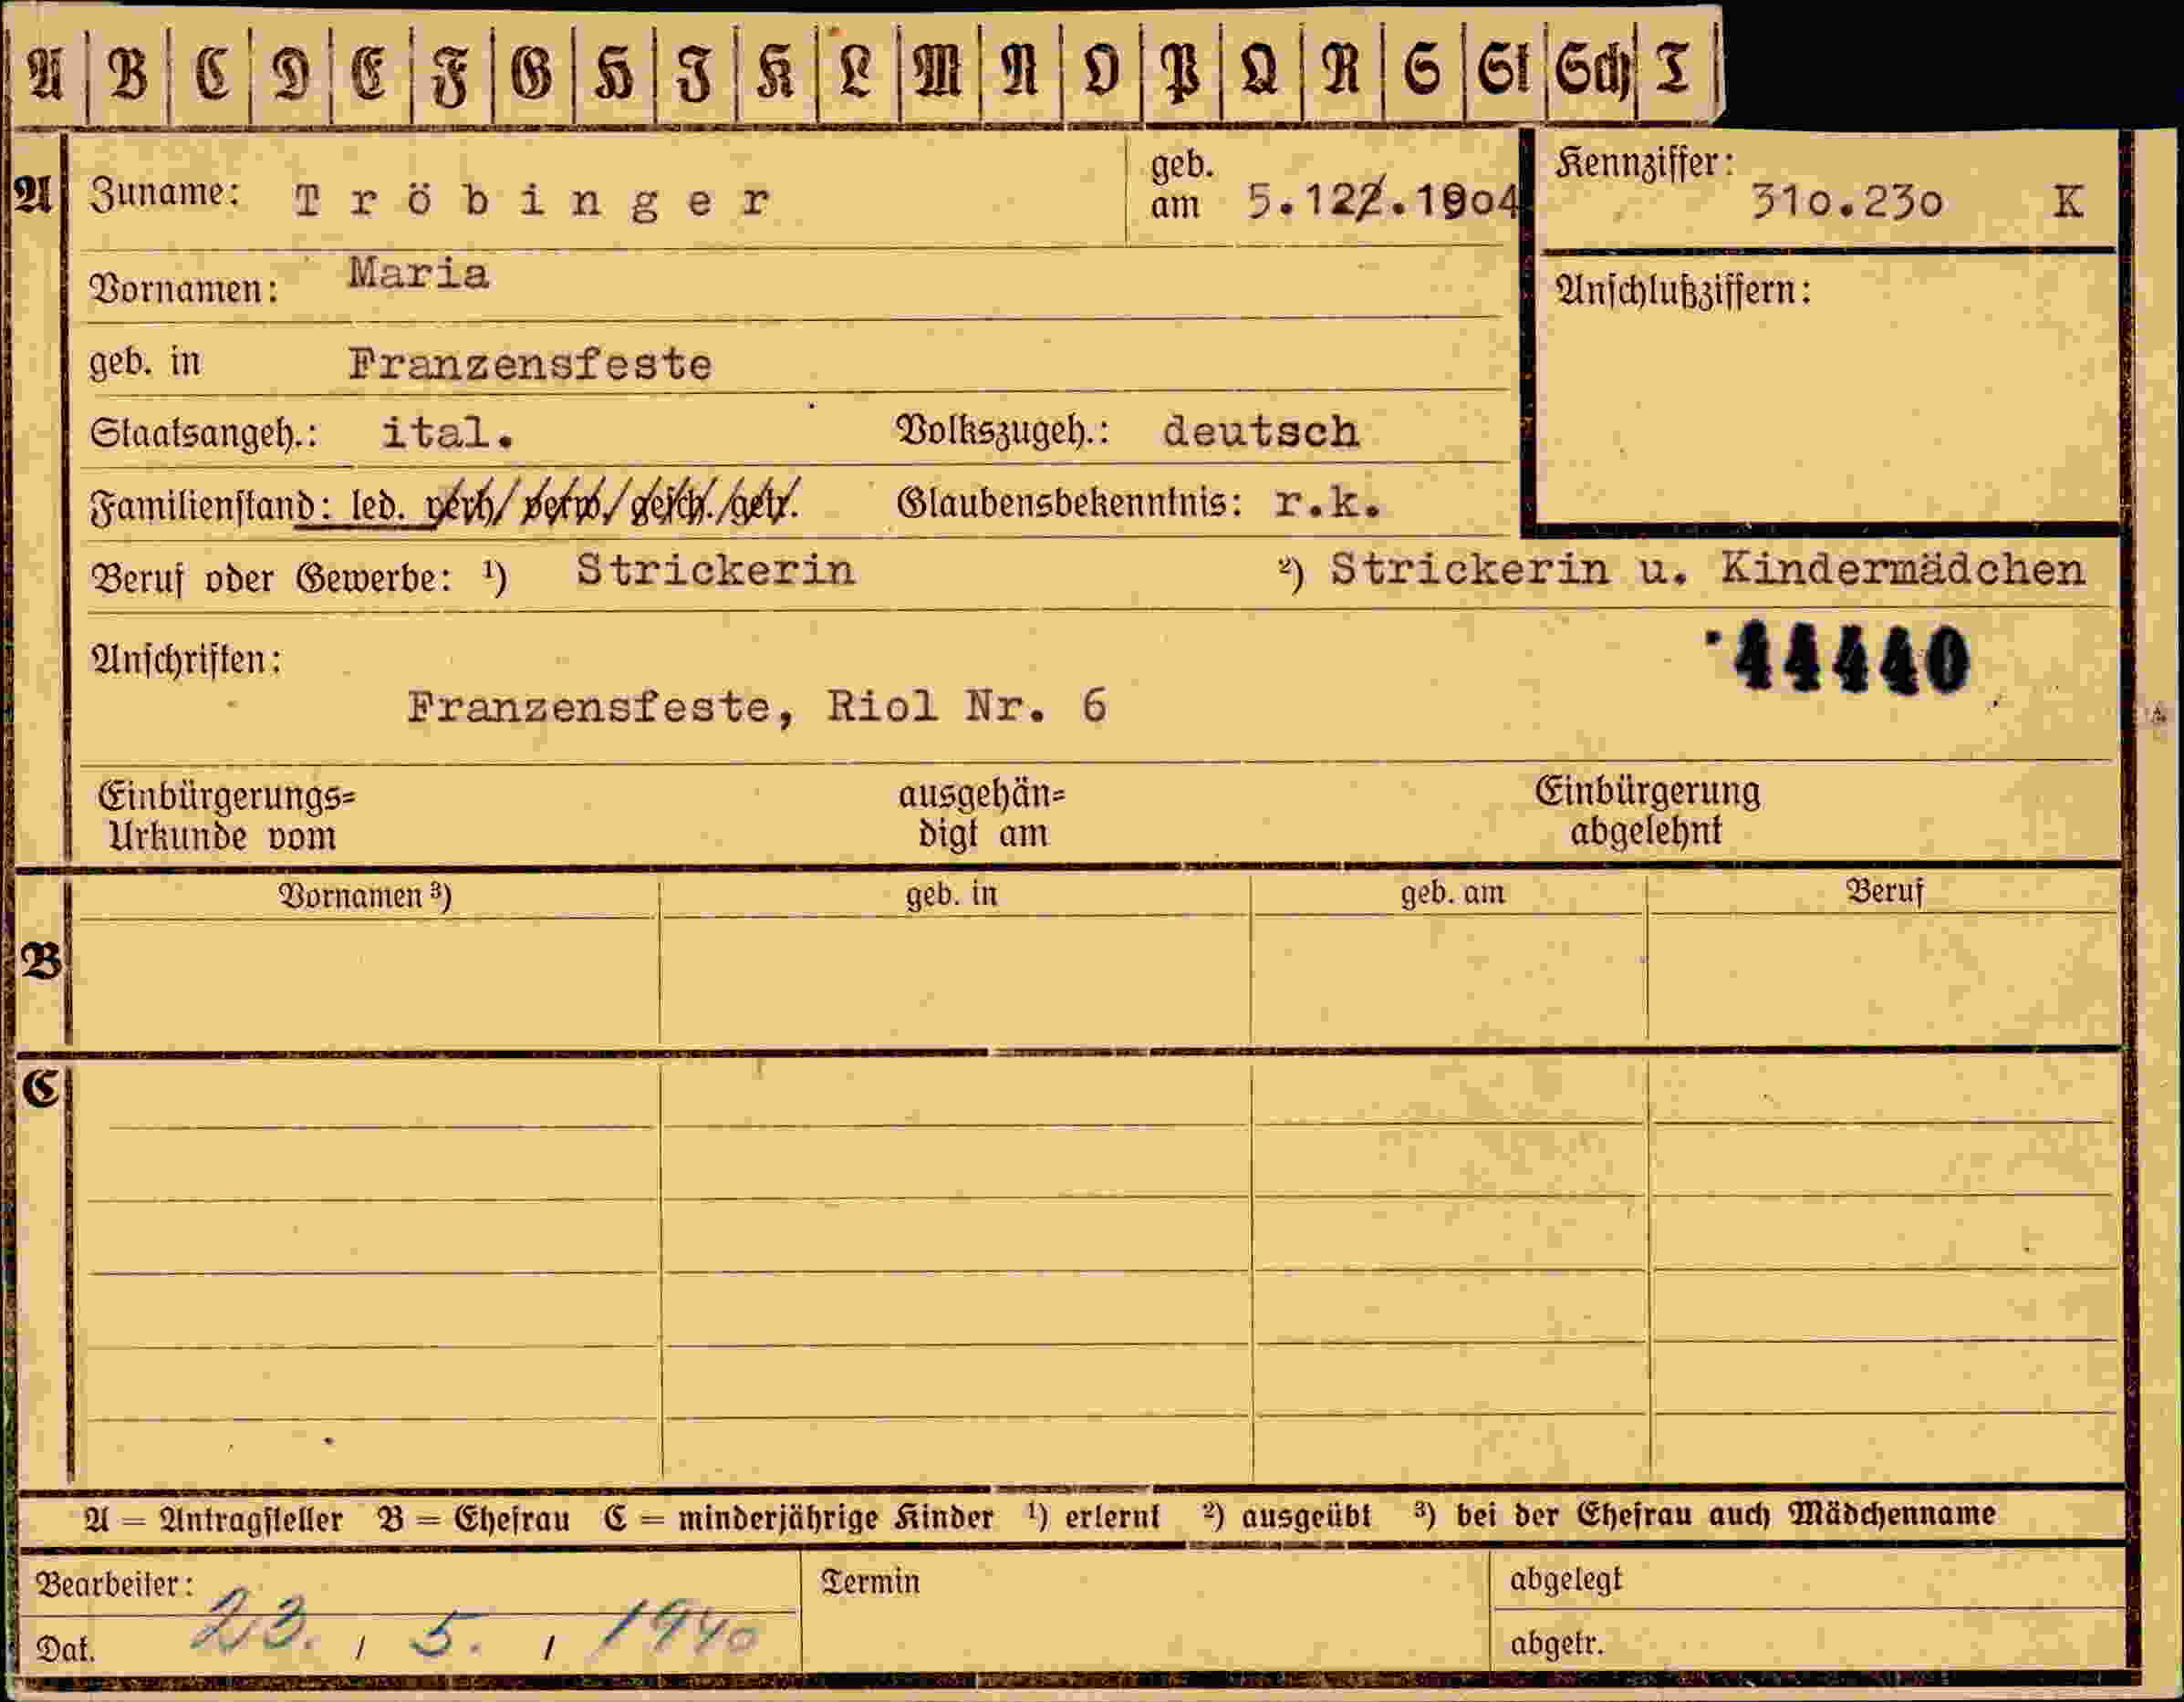 A B C D E F G H I K L M N O P Q R S St Sch T
A Zuname: Tröbinger geb. am 5.122.1904 Kennziffer: 310.230 K
Vornamen: Maria Anschlußziffern:
geb. in Franzensfeste
Staatsangeh.: ital. Volkszugeh.: deutsch
Familienstand: led. verh/ verw./ gesch./getr. Glaubensbekenntnis: r.k.
Beruf oder Gewerbe: ¹) Strickerin ²) Strickerin u. Kindermädchen
Anschriften: 44440
Franzensfeste, Riol Nr. 6
Einbürgerungs= ausgehän= Einbürgerung
Urkunde vom digt am abgelehnt
Vornamen ³) geb. in geb. am Beruf
B
C
A = Antragsteller B = Ehefrau C = minderjährige Kinder ¹) erlernt ²) ausgeübt ³) bei der Ehefrau auch Mädchenname
Bearbeiter: Termin abgelegt
Dat. 23. / 5. / 1940 abgetr.